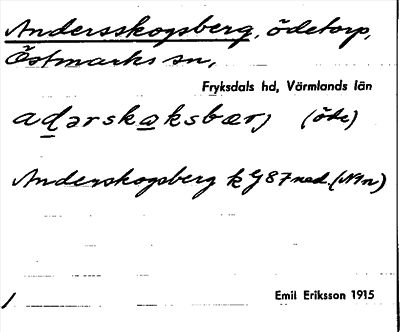 Andersskogsberg, ödetorp,
Östmarks sn,
Fryksdals hd, Värmlands län
aḍərskạksbærj (öde)
Anderskogsberg k G 87 ned. (N1n)
/
Emil Eriksson 1915